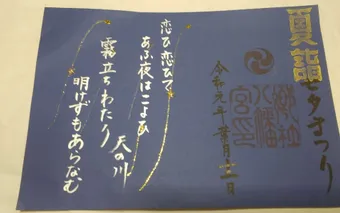 夏詣
七夕まつり
令和元年 葉月十一日
恋ひ恋ひて
あふ夜はこよひ
天の川
霧立ちわたり
明けずもあらなむ